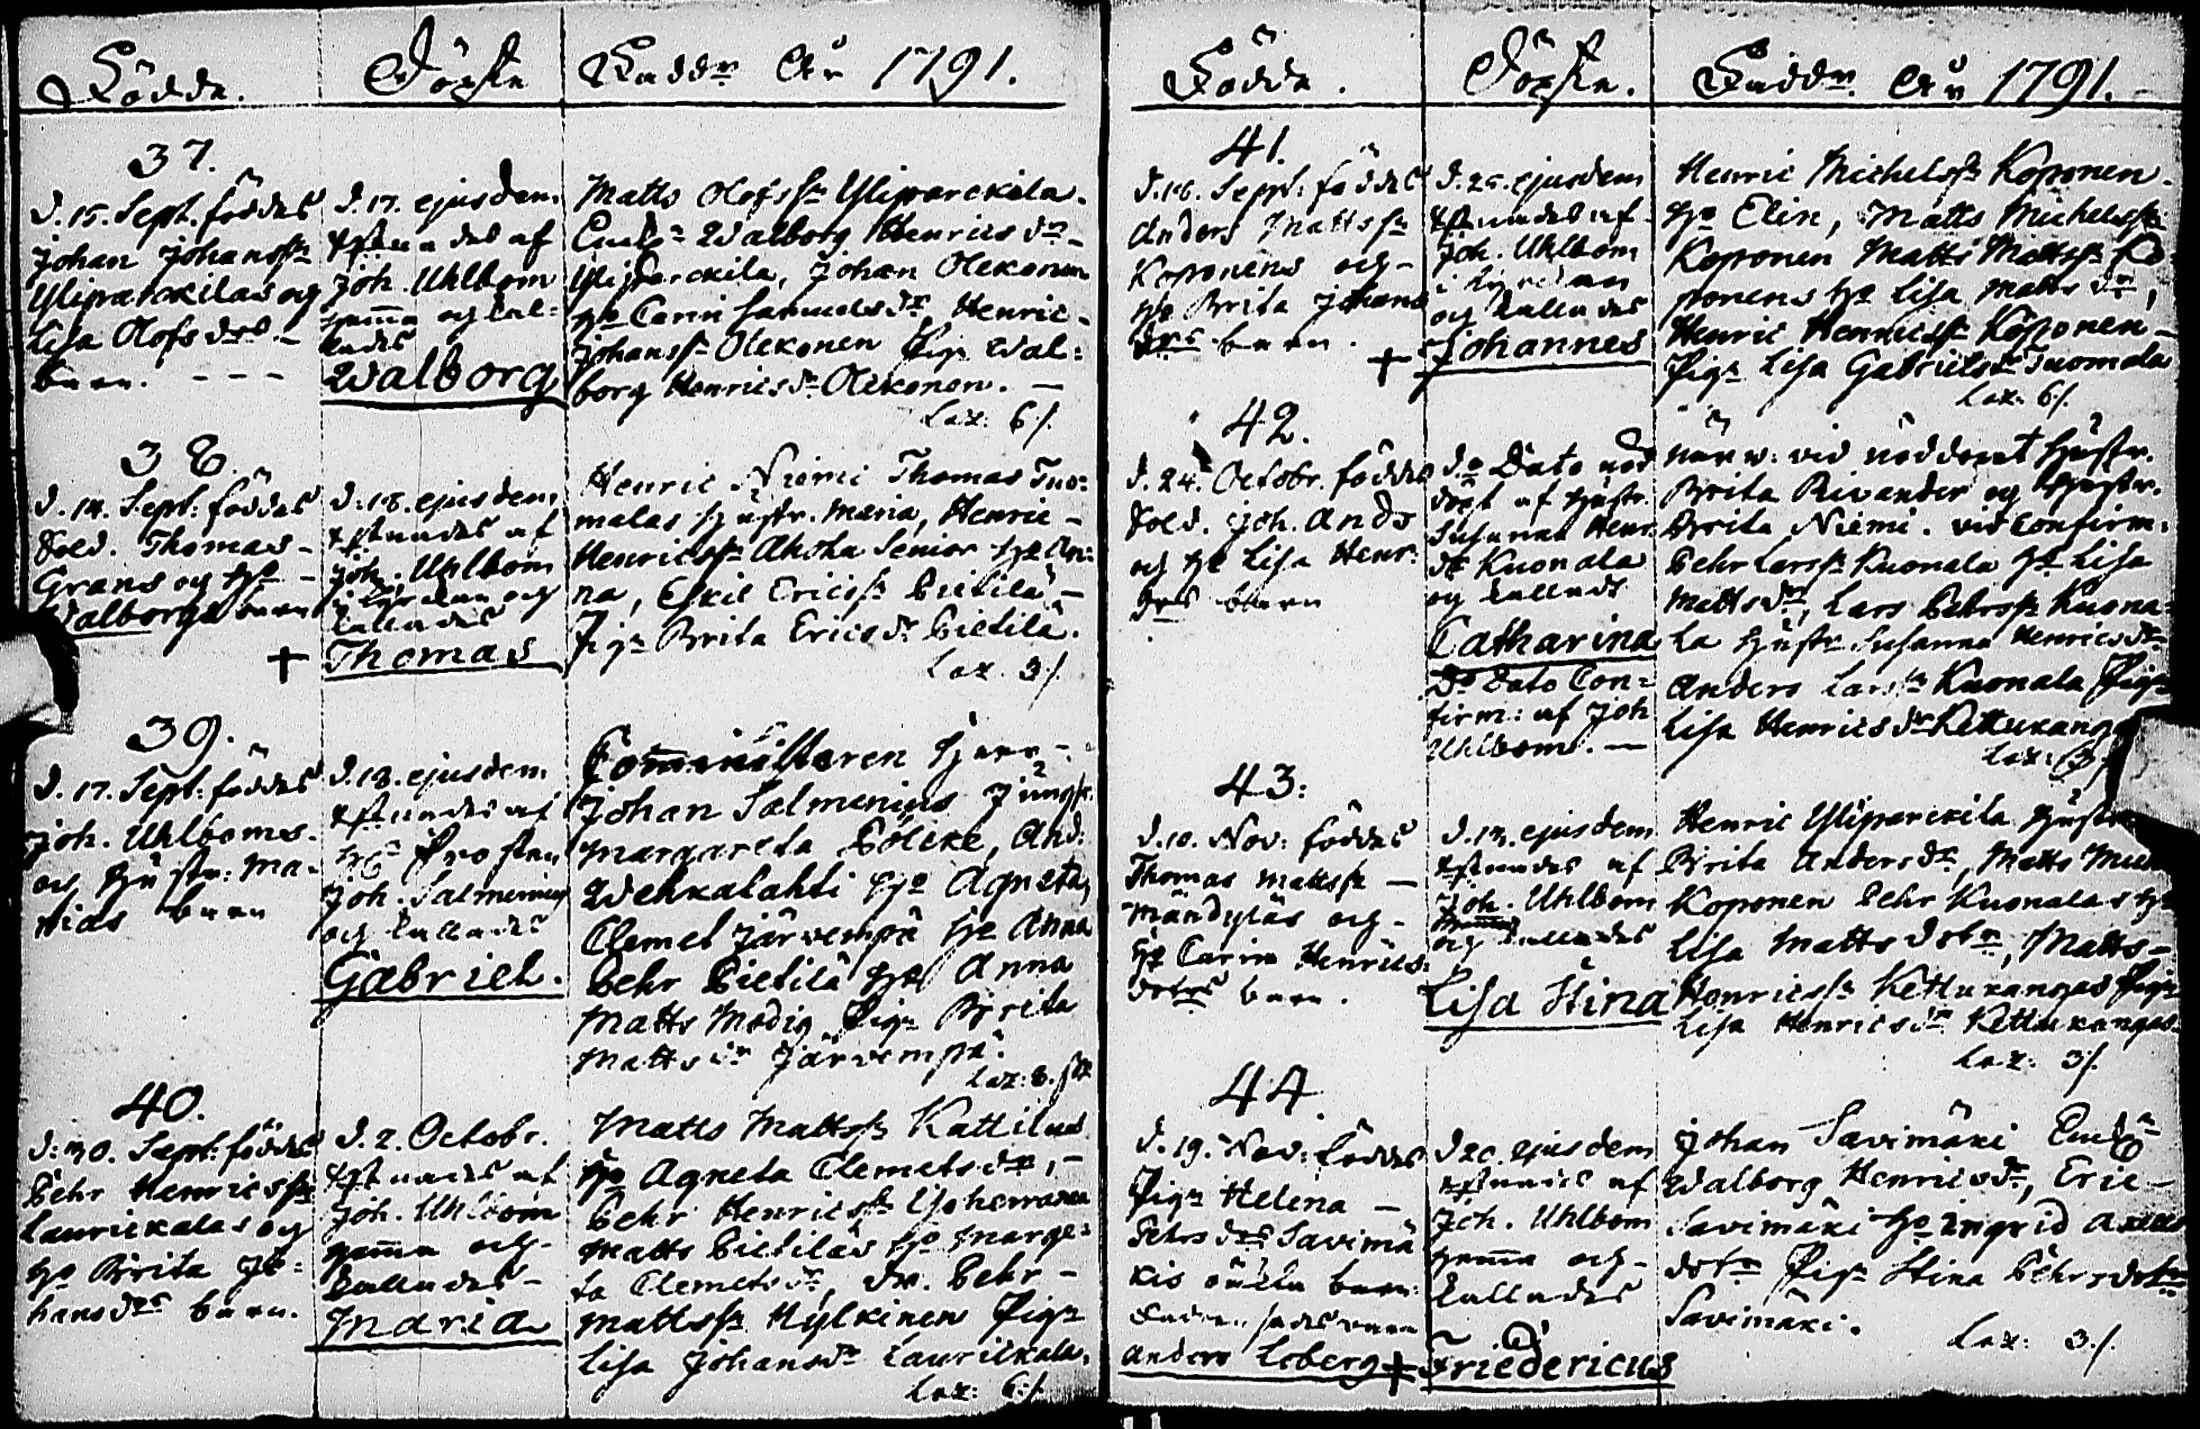 Födde.
Döpte
Faddr År 1791.
37.
d. 15. Sept. föddes
Johan Johanss
Yliparckilas og
Lisa Olofs drs
barn. - - -
d. 17. ejusdem
af
Joh. Uhlbom
hema og kal-
lades
Walborg
Matts Olofss Yliparckila.
Enk. Walborg Henrics dr
Yliparckila, Johan Olckonen
h. Carin Samuels dr, Henric
Johanss Olckonen Pig. Wal-
borg Henrics dr Olckonen. -
Lax: 6/.
38.
d. 14. Sept: föddes
Sold. Thomas
Grans og h.
Walborgs barn
+
d. 18. ejusdem
af
Joh. Uhlbom
i kyrckan och
kallades
Thomas
Henric Niemi Thomas Tuo-
malas hustr. Maria, Henric -
Henricss Ahoka Senior h. An-
na, Eskil Ericss Pietilä -
Pig. Brita Erics dr Pietilä.
Lax. 3/.
39.
d. 17. Sept: föddes
Joh. Uhlboms
og hustr: Ma-
rias barn
d. 18. ejusdem
af
Prosten
Joh. Salmenius
og kallades
Gabriel.
Comministeren herr
Johan Salmenius Jungfr.
Margareta Bölcke, And:
Wehkalahti h. Agneta,
Clemet Järvempä h. Anna
Pehr Pietilä h. Anna
Matts Modig Pig. Brita
Matts dr Järvempä.
40.
d: 30. Sept: föddes
Pehr Henricss
Laurickalas og
h. Brita Jo-
hans drs barn.
d. 2. Octobr.
af
Joh. Uhlbom
hema och
kallades
Maria
Matts Mattss Kattilus
h. Agneta Clemets dr, -
Pehr Henricss
Matts Pietiläs h. Marge-
ta Clemets dr, dr. Pehr -
Mattss Hylkinen Pig.
Lisa Johans dr Laurickala.
Lax: 6/.
Födde.
Döpte.
Faddr. År 1791.
41.
d. 16. Sept: föddes
Anders Mattss
Koponens og
h. Brita Johans
drs barn.
+
d. 25. ejusdem
af
Joh. Uhlbom
i kyrckan
og kallades
Johannes
Henric Michelss Koponen.
h. Elin, Matts Michelss
Koponen Matts Mattss Ko-
ponens h. Lisa Matts dr,
Henric Henricss Koponen -
Pig. Lisa Gabriels dr Tuomala
Lax: 6/.
42.
d. 24. Octobr. föddes
Sold. Joh. Ands
og h. Lisa Henr:
drs barn
do Dato nöd
döpt af hustr.
Susanna Henr.
dr Kuonala
og kallads
Catharina
do Dato Con-
firm: af Joh
Uhlbom. -
närw: vid nöddopet hustr.
Brita Rivander og hustr.
Brita Niemi. vid Confirm:
Pehr Larss Kuonala h. Lisa
Matts dr, Lars Pehrss Kuona-
la hustr Susanna Henrics dr
Anders Larss Kuonala Pig.
Lisa Henrics dr Kettukanga
Lax: 3
43:
d. 10. Nov: föddes
Thomas Mattss -
Mändyläs og
h. Carin Henrics
dotrs barn.
d. 13. ejusdem
af
Joh. Uhlbom
og kallades
Lisa Stina
Henric Yliparckila hustr
Brita Anders dr, Matts Mich
Koponen Pehr Kuonalas h.
Lisa Matts dotr, Matts -
Henricss Kettukangas Pig.
Lisa Henrics dr Kettukangas.
Lax: 3/.
44.
d. 19. Nov: föddes
Pig. Helena -
Pehrs drs Savimä
kis oäckta barn.
Anders Loberg +
d 20. ejusdem
af
Joh. Uhlbom
hema och
kallades
Friedericus
Johan Savimäki Enk
Walborg Henrics dr, Eric -
Savimäki h. Ingrid Axels
dotr Pig. Stina Pehrs dotr
Savimäki.
Lax: 3/.